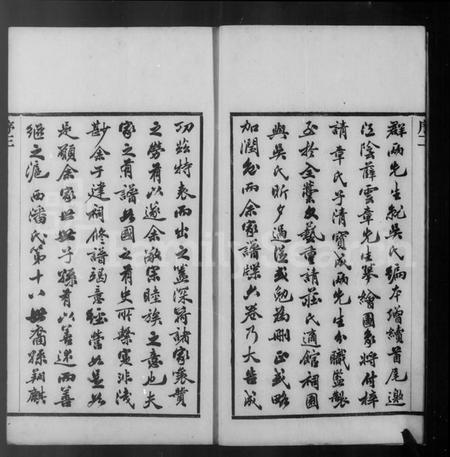 序二
群兩先生就吳氏編本增續首尾邀
江陰薛雲章先生摹繪圖象將付梓
請章氏子清寶成兩先生分職監製
至於全藁文藝重請莊氏適館祠圖
與吳氏昕夕過從或勉為刪正或略
加潤色而余家譜牒六卷乃大告成
功茲特表而出之蓋深荷諸家襄贊
之勞有以遂余敬宗睦族之意也夫
家之有譜如國之有史所繫實非淺
尠余于建祠修譜竭意經營如是如
是願余家世世子孫有以善述而善
繼之滬西潘氏第十八世裔孫翔麒
序三